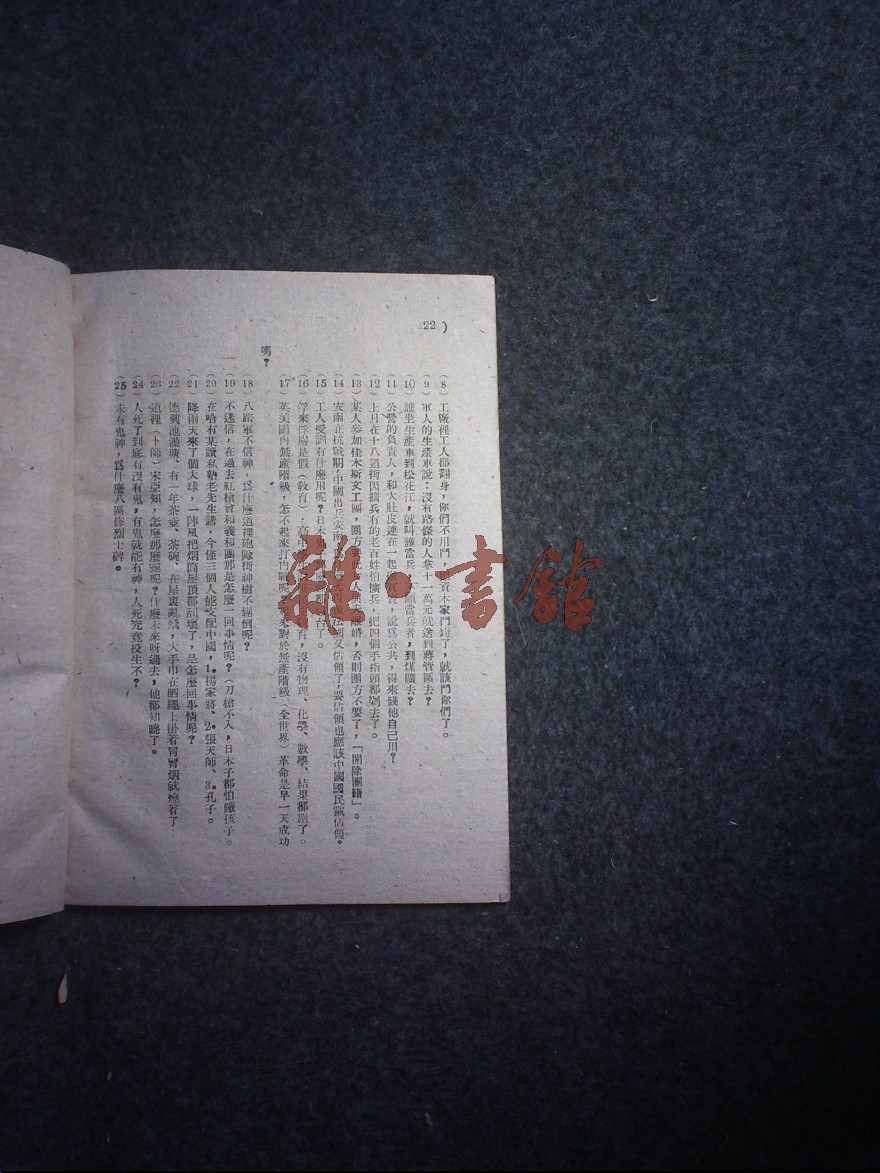 22)
(8) 工廠裡工人都翻身,你們不用鬥,資本家鬥垮了,就該鬥你們了。
(9) 軍人的生產車說:沒有路條的人拿十一萬元就送到蔣管區去?
(10) 誰坐生產車到松花江,就叫誰當兵,不願當兵者,到煤礦去?
(11) 公營的負責人,和大肚皮連在一起,說爲公共,得來錢他自己用?
(12) 上月在十八道街因擴兵有的老百姓怕擴兵,把四個手指頭都剁去了。
(13) 某人參加佳木斯文工團,團方要人離婚,否則團方不要了,「開除團籍」。
(14) 安南在抗戰期,中國出兵法國又佔領了,要佔領也應該中國國民黨佔領。
(15) 工人受訓有什麼用呢?日本台了。
(16) 浮來浮屠是假(敎育):高中育,沒有物理、化學、數學、結果都跑了。
(17) 英美國內無產階級,怎不起來打內戰呢來對於無產階級(全世界)革命是早一天成功
嗎?
(18) 八路軍不信神,爲什麼道裡砲隊街神樹不鋸倒呢?
(19) 不迷信,在過去紅槍會和義和團那是怎麼一回事情呢?(刀槍不入,日本子都怕鐵孩子。
(20) 在哈有某讀私塾老先生講,今僅三個人能支配中國,1.楊家將、2.張天師、3.孔子。
(21) 降雨天來了個大球,一陣風把烟筒屋頂都刮壞了,是怎麼回事情呢?
(22) 澡塘、有一年茶壺、茶碗、在屋裏亂飛,大手巾在晒繩上掛着冒冒烟就燒着了。
(23) 道裡(卜師)宋亞知,怎麼那麼靈呢?什麼未來呀過去,他都知曉了。
(24) 人死了到底有沒有鬼,有鬼就能有神,人死究竟投生不?
(25) 未有鬼神,爲什麼八區修烈士碑。
雜·書館